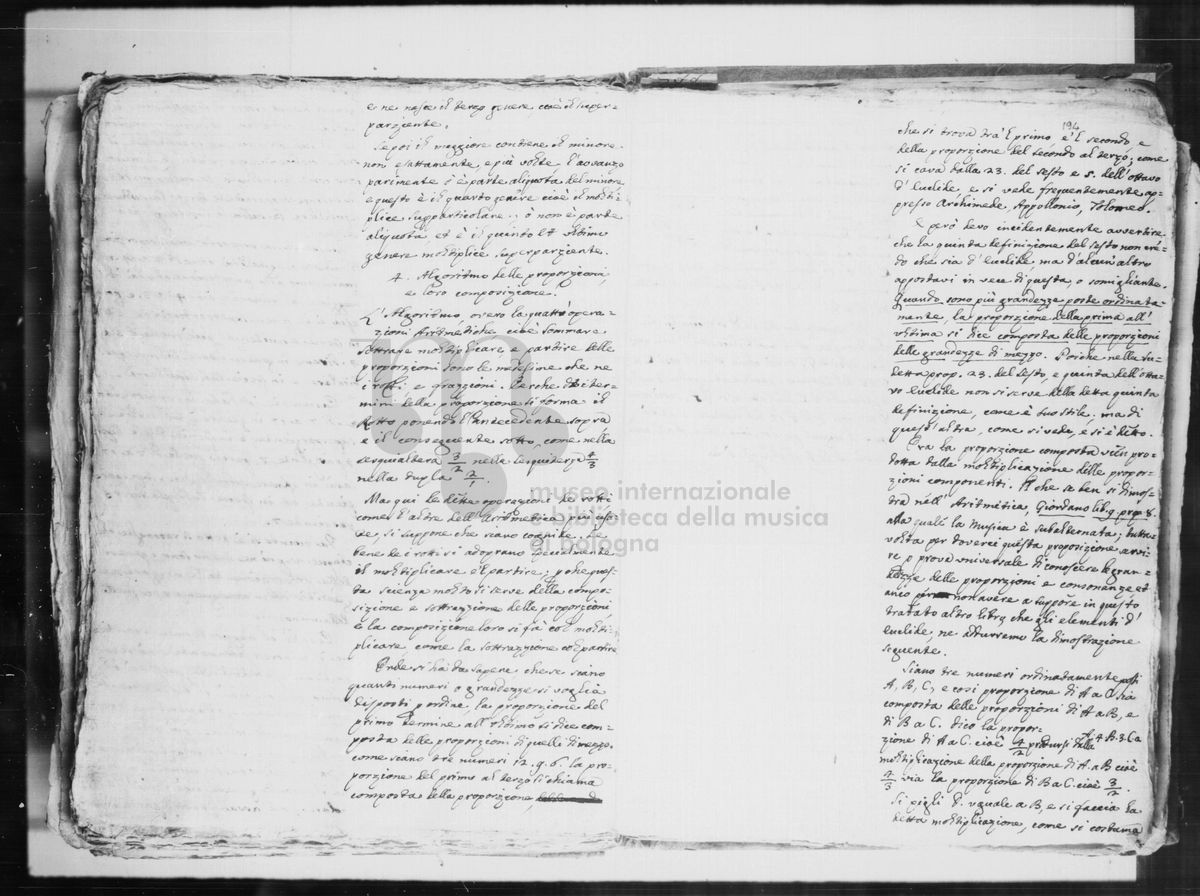 e ne nasce il terzo genere, cioè il super=
parziente.
Se poi il maggiore contiene il minore
non esattamente, e più volte l'avanzo
parimente ò è parte aliquota del minore
e questo è il quarto genere cioè il molti=
plice supparticolare.. ò non è parte
aliquota, et è il quinto et ultimo
genere moltiplice superparziente.
4. Algoritmo delle proporzioni,
e loro composizione.
L'Algoritmo, overo la quattro opera=
zzioni Aritmetiche cioè sommare
sottrare moltiplicare, e partire delle
proporzioni sono le medesime che ne
i rotti e frazzioni. Perche di ter=
mini della proporzione si forma il
Rotto ponendo l'antecedente sopra
e il conseguente sotto, come nella
sesquialtera 3/2 nella sesquiterza 4/3
nella dupla 2/1.
Ma qui le dette operazioni de rotti
come l'altre dell'Aritmetica
se, si suppone che siano cognite. Se
bene de i rotti si adoprano specialmente
il moltiplicare e'l partire; poiche ques=
ta scienza molto si serve della compo=
sizione e sottrazzione delle proporzioni
e la composizione loro si fà col molti=
plicare come la sottrazzione col partire
Onde si ha da sapere che se siano
quanti numeri, o grandezze si voglia
disposti p ordine, la proporzione del
primo termine all'ultimo si dice com=
posta delle proporzioni di quelle di mezzo.
come siano tre numeri 12. 9. 6. la pro=
porzione del primo al terzo si chiama
composta della proporzione
194
che si trova trà'l primo e'l secondo, e
della proporzione del secondo al terzo; come
si cava dalla 23. del sesto e 5. dell'ottavo
d'Euclide, e si vede frequentemente ap=
presso Archimede, Appollonio, Tolomeo.
E però devo incidentemente avvertire
che la quinta definizione del sesto non cre=
do che sia d'Euclide, ma d'alcun'altro
appostavi in vece di questa, o somigliante.
Quando sono più grandezze poste ordinata=
mente, la proporzione della prima all'
ultima si dice composta delle proporzioni
delle grandezze di mezzo. Perche nella su=
detta prop. 23. del sesto, e quinta dell'otta=
vo Euclide non si serve della detta quinta
definizione, come è suo stile, ma di
quest'altra, come si vede, e si è detto.
Ora la proporzione composta vien pro=
dotta dalla moltiplicazione delle propor=
zioni componenti. Il che se ben si dimos=
tra nell'Aritmetica, Giordano lib. 9 prop. 8.
alla quale la Musica è subalternata; tutta=
volta per doverci questa proposizione servi=
re p prova universale di conoscere le gran=
dezze delle proporzioni e consonanze et
anco non avere a suppore in questo
tratato altro libro che gli elementi d'
Euclide, ne addurremo la dimostrazione
seguente.
Siano tre numeri ordinatamente posti
A, B, C, e così proporzione di A a C sia
composta delle proporzioni di A a B, e
di B a C. dico la propor= A. 4 B. 3. C 2
zione di A a C. cioè 4/2 prodursi dalla
moltiplicazione della proporzione di A a B cioè
4/3 via la proporzione di B a C. cioè 3/2.
Si pigli D. uguale a B, e si faccia la
detta moltiplicazione, come si costuma
museo internazionale
e biblioteca della musica
di bologna